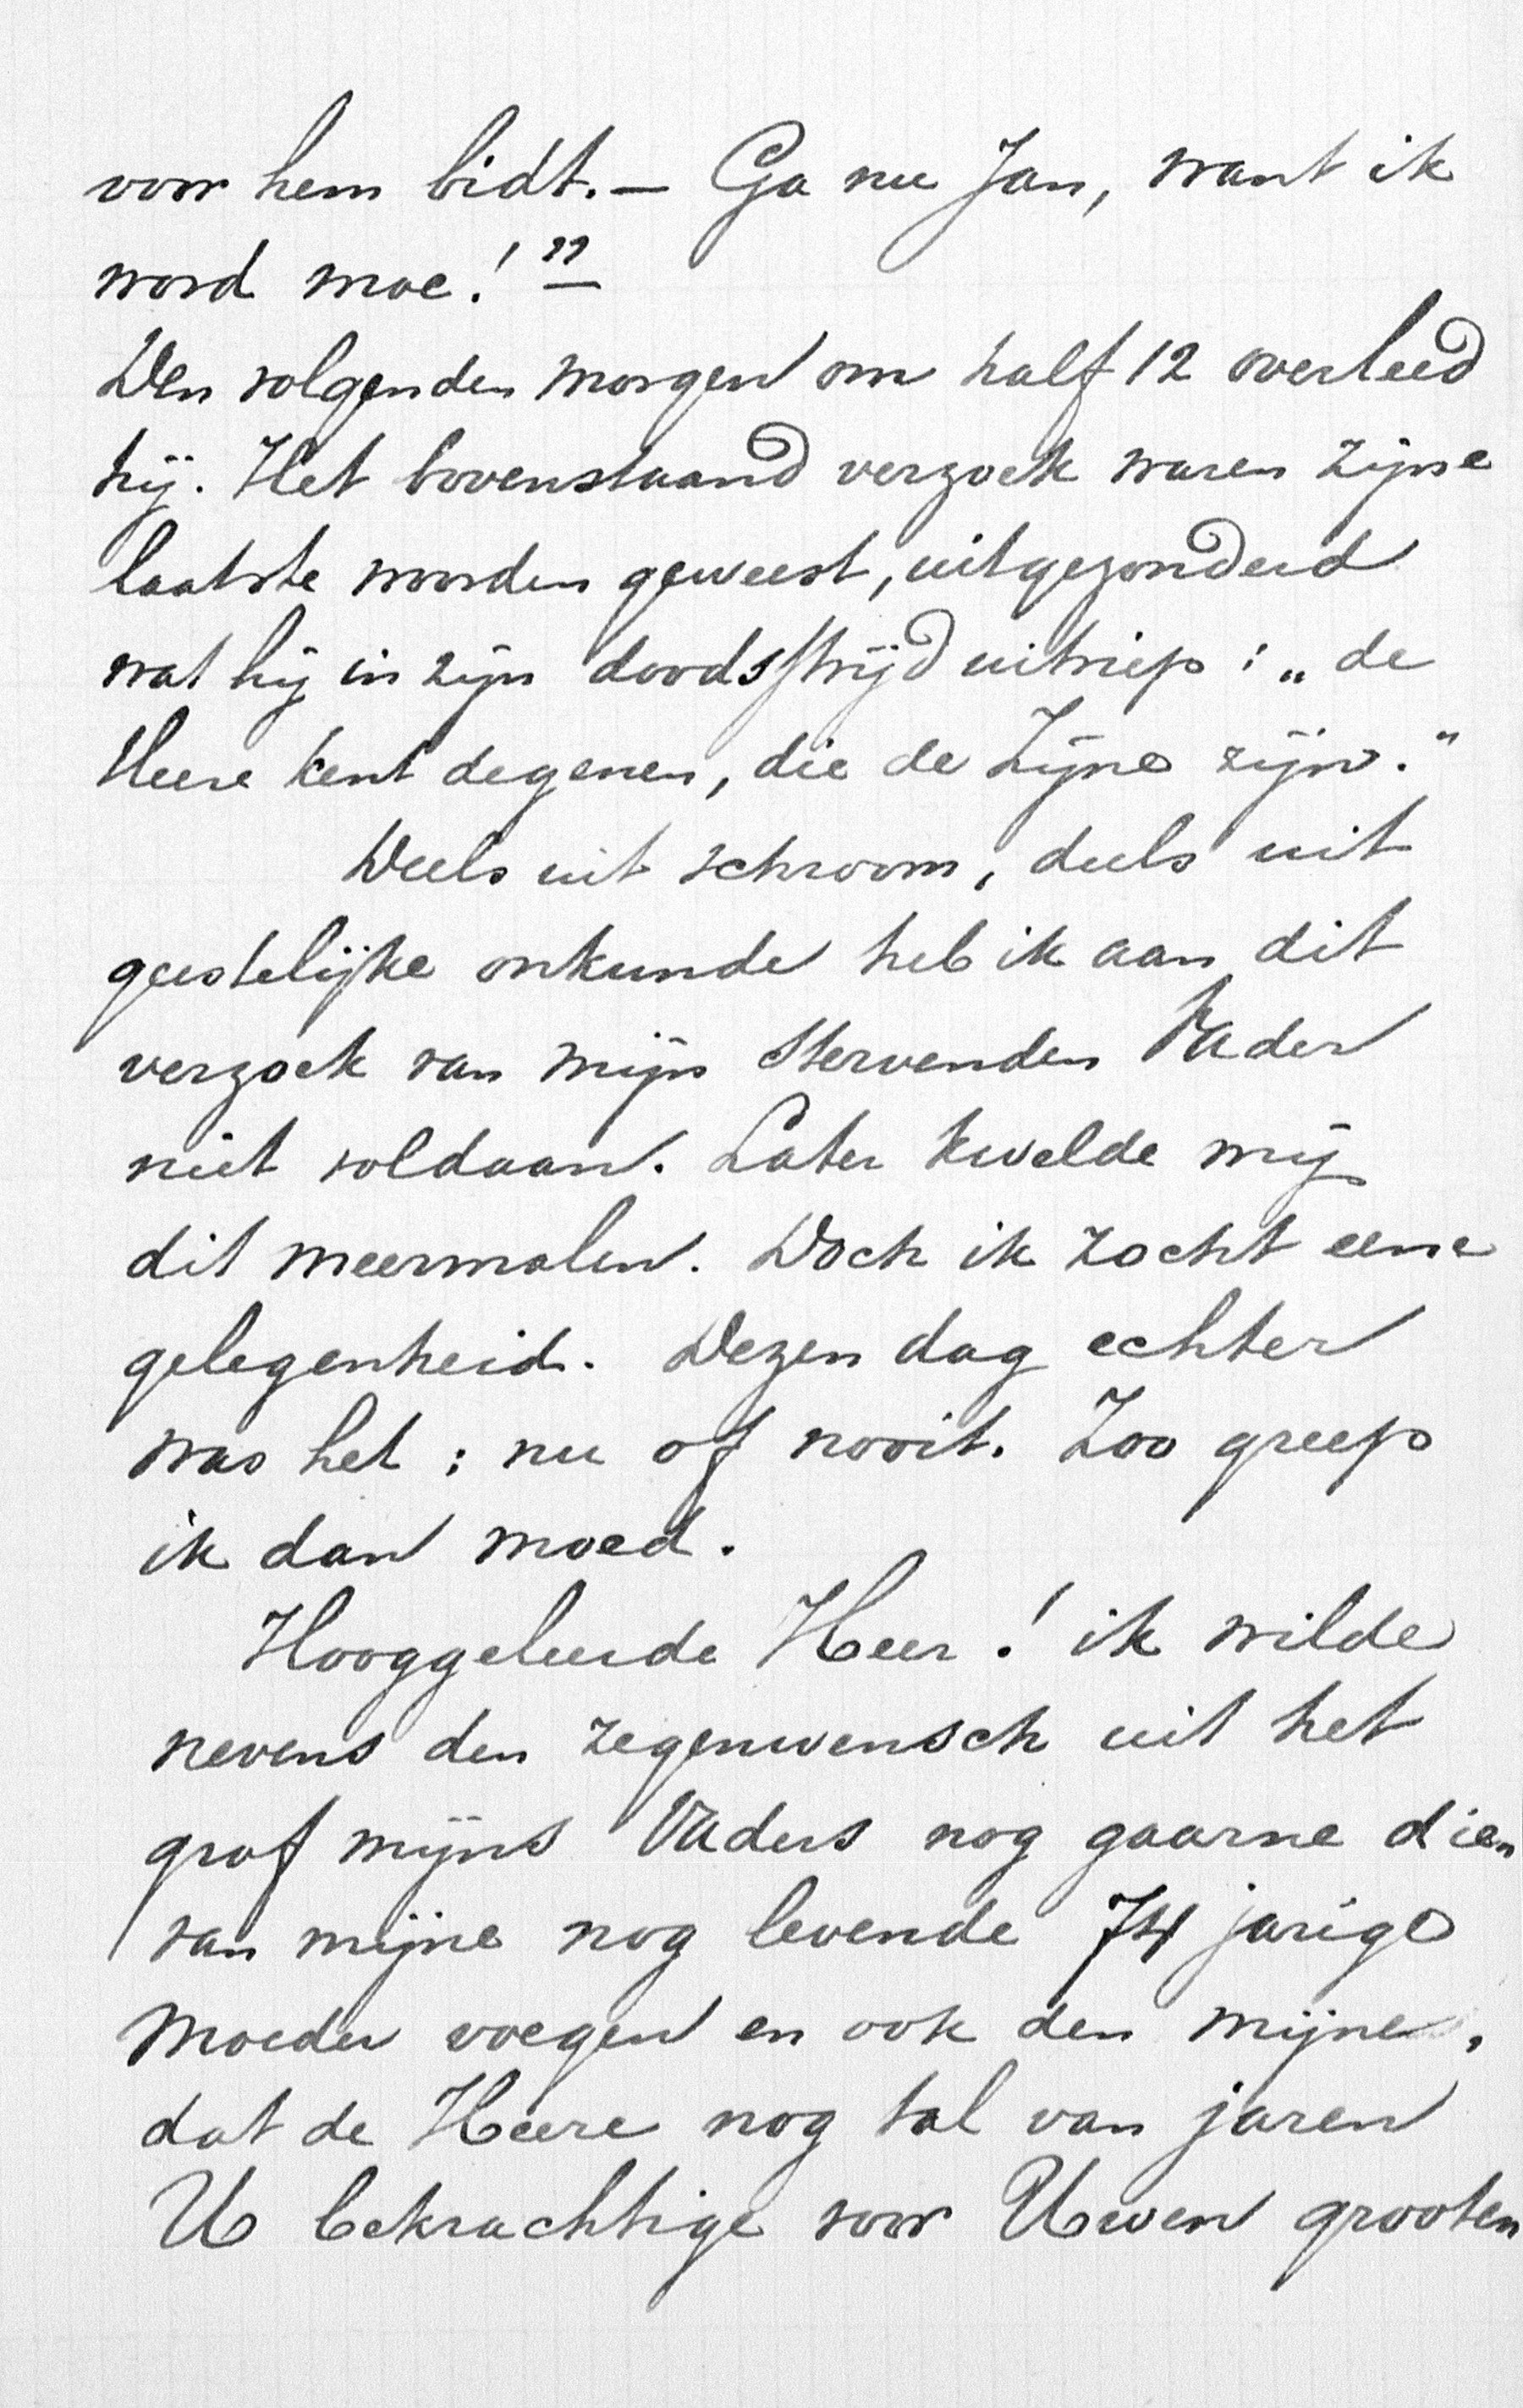 voor hem bidt. — Ga nu Jan, want ik
word moe! "
Den volgenden morgen om half 12 overleed
hij. Het bovenstaand verzoek waren zijne
laatste woorden geweest, uitgezonderd
wat hij in zijn doodsstrijd uitriep: „de
Heere kent degenen, die de Zijne zijn."
Deels uit schroom, deels uit
geestelijke onkunde heb ik aan dit
verzoek van mijn stervenden Vader
niet voldaan. Later kwelde mij
dit meermalen. Doch ik zocht eene
gelegenheid. Dezen dag echter
was het: nu of nooit. Zoo greep
ik dan moed.
Hooggeleerde Heer! ik wilde
nevens den zegenwensch uit het
graf mijns Vaders nog gaarne dien
van mijne nog levende 74 jarige
Moeder voegen en ook den mijne,
dat de Heere nog tal van jaren
U bekrachtige voor Uwen grooten